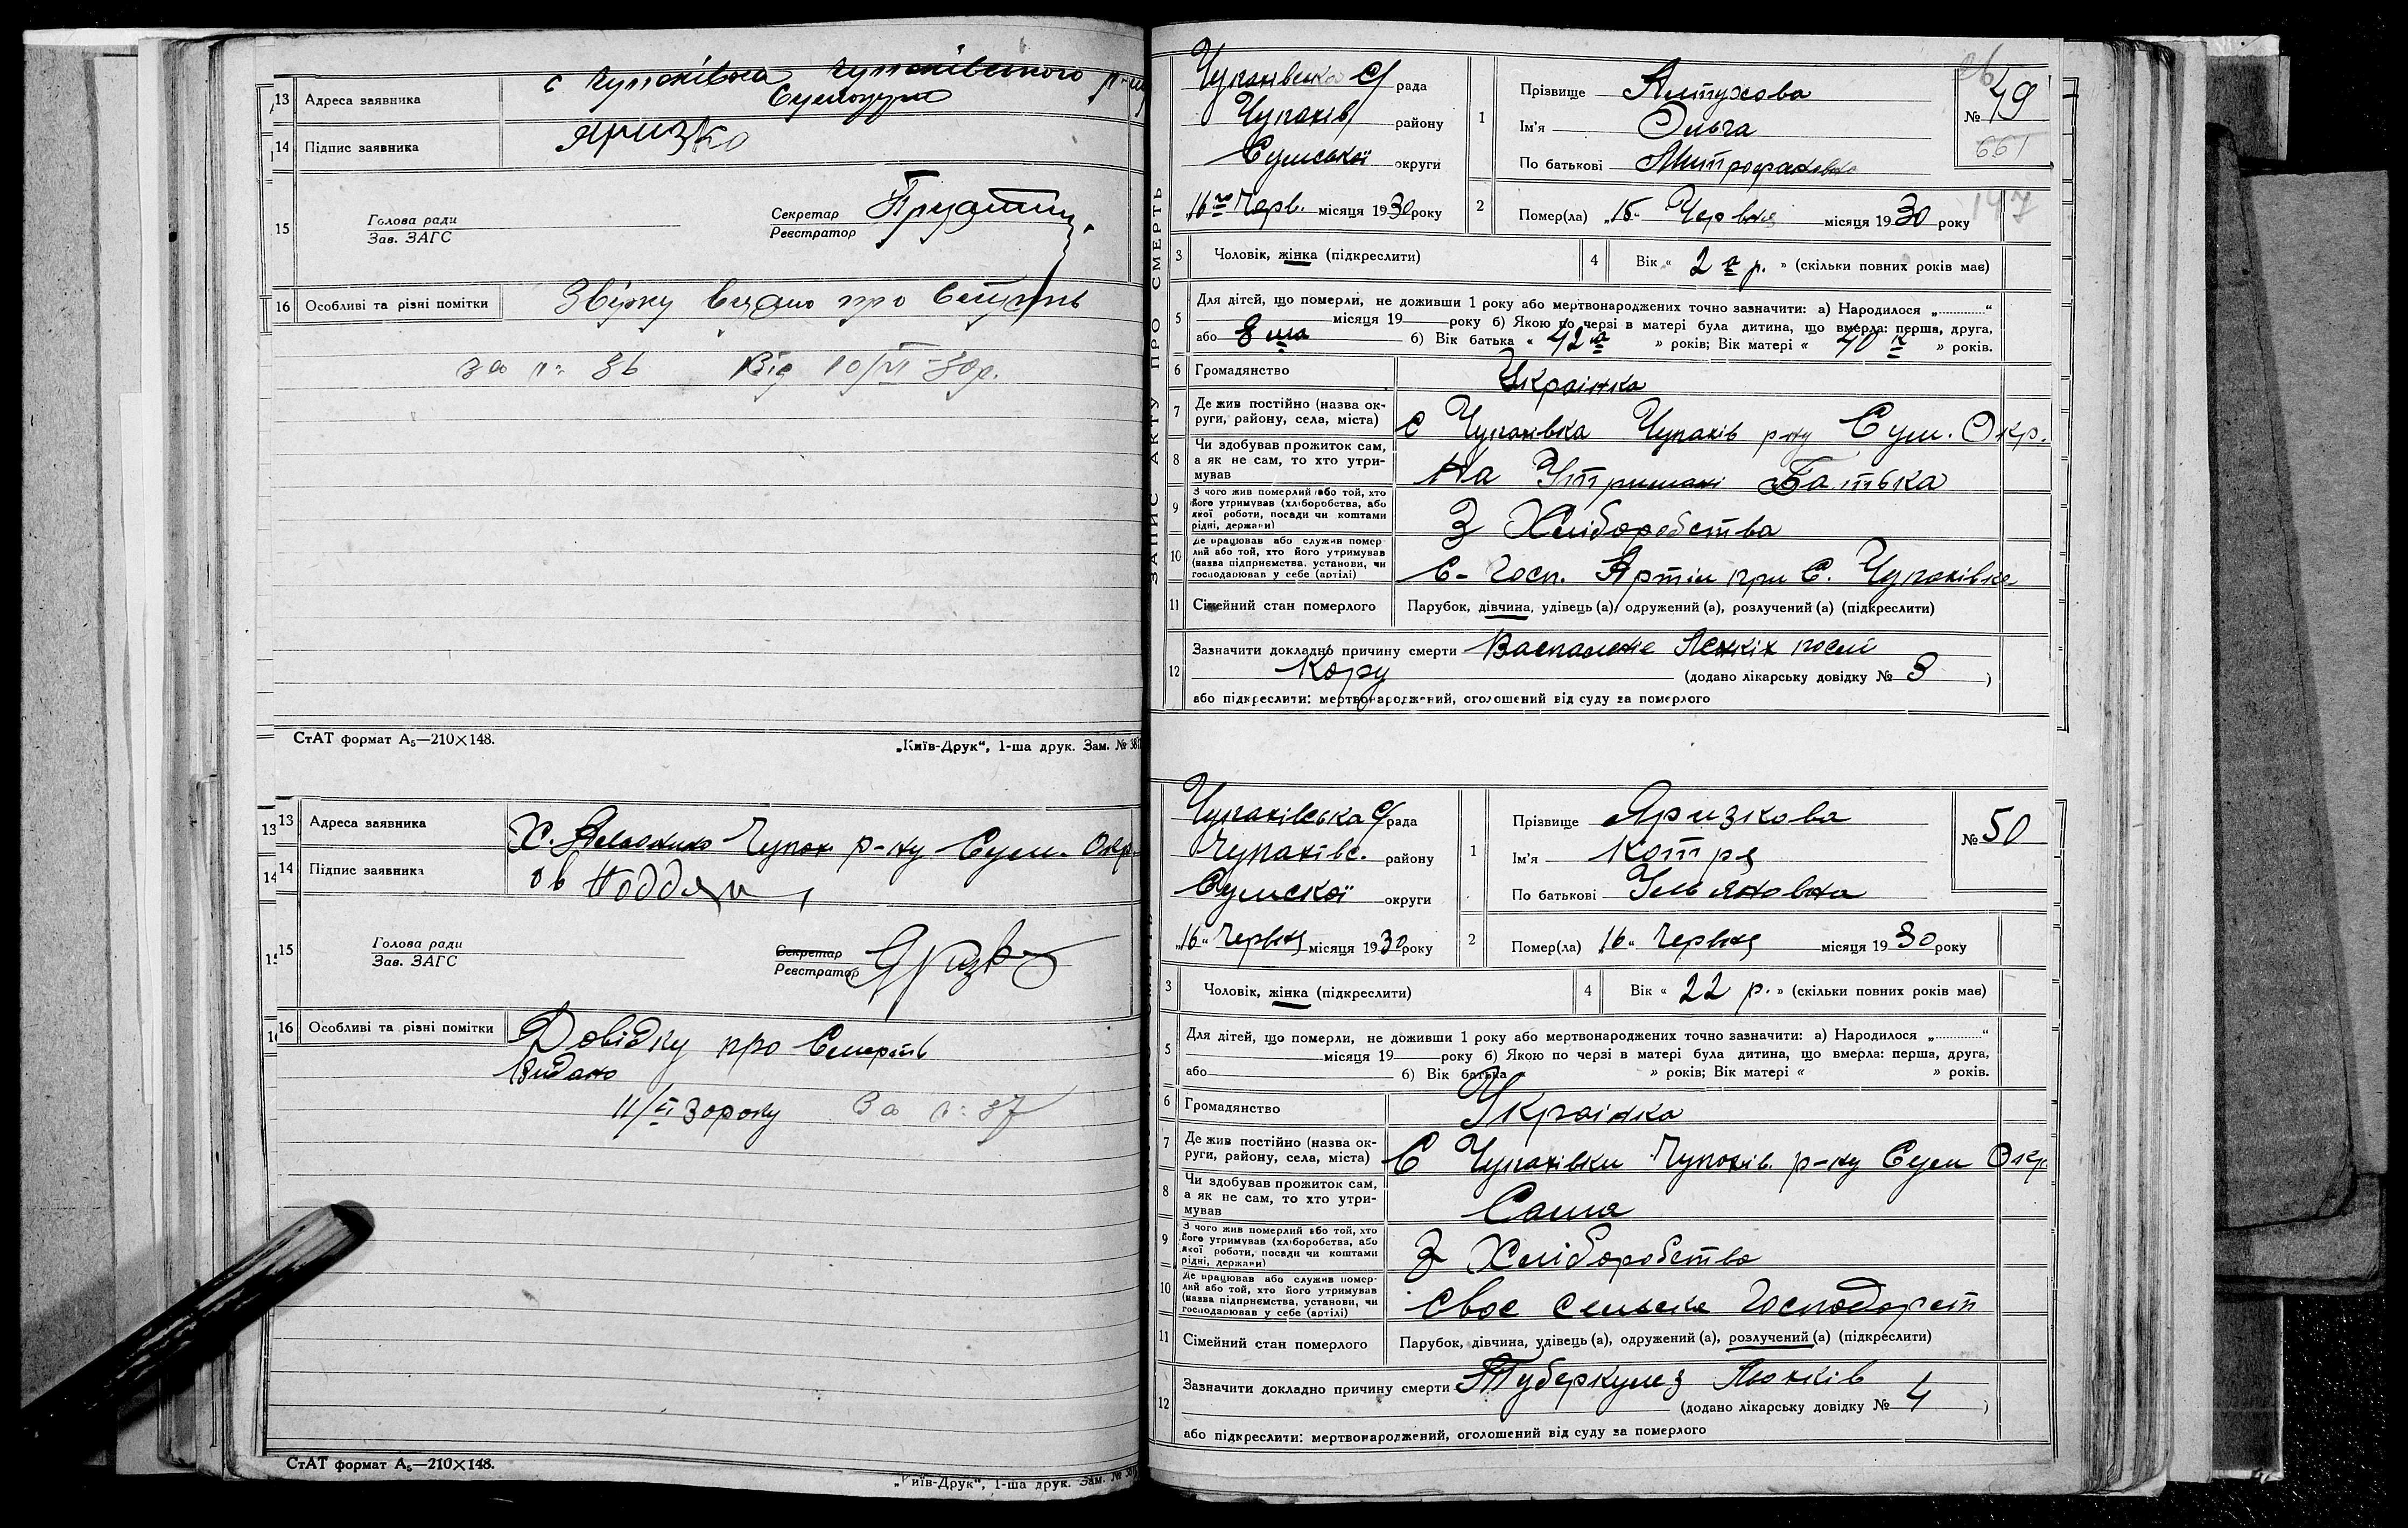 13 Адреса заявника с Чупахівка Чупахівського р-ну
Сумокруги
14 Підпис заявника Яризко
15 Голова ради
Зав. ЗАГС
Секретар
Реєстратор
16 Особливі та різні помітки
за № 36 Від 10/VI-30р.
СтАТ формат А₅—210×148.
„Київ-Друк“, 1-ша друк. Зам. №
13 Адреса заявника Х. Чупах р-ну Сум. Окр.
14 Підпис заявника
15 Голова ради
Зав. ЗАГС
Секретар
Реєстратор
16 Особливі та різні помітки Довідку про Смерть
Видано
11/VI 30 року За №: 37
СтАТ формат А₅—210×148.
„Київ-Друк“, 1-ша друк. Зам. №
ЗАПИС АКТУ ПРО СМЕРТЬ
Чупахівська С/рада
Чупахів району
Сумської округи
„16го Черв. місяця 1930 року
1 Прізвище Алтухова
Ім'я Ольга
По батькові Митрофановна
№ 49
661
147
2 Помер(ла) „15“ Червня місяця 1930 року
3 Чоловік, жінка (підкреслити)
4 Вік « 2 р. » (скільки повних років має)
5 Для дітей, що померли, не доживши 1 року або мертвонароджених точно зазначити: а) Народилося „............“
місяця 19 року б) Якою по черзі в матері була дитина, що вмерла: перша, друга,
або 8 ма б) Вік батька « 42 » років; Вік матері « 40 » років.
6 Громадянство Украінка
7 Де жив постійно (назва ок-
руги, району, села, міста) С Чупахівка Чупахів р-ну Сум. Окр.
8 Чи здобував прожиток сам,
а як не сам, то хто утри-
мував На Утримані Батька
9 З чого жив померлий або той, хто
його утримував (хліборобства, або
якої роботи, посади чи коштами
рідні, держави) З Хліборобства
10 Де працював або служив помер-
лий або той, хто його утримував
(назва підприємства, установи, чи
господарював у себе (артілі) С-Госп. Артіл при С. Чупахівке
11 Сімейний стан померлого Парубок, дівчина, удівець (а), одружений (а), розлучений (а) (підкреслити)
12 Зазначити докладно причину смерти Васпаленіе Легкіх посли
Кору (додано лікарську довідку № 3 )
або підкреслити: мертвонароджений, оголошений від суду за померлого
Чупахівська С/рада
Чупахівс. району
Сумской округи
„16“ Червня місяця 1930 року
1 Прізвище Яризкова
Ім'я Котря
По батькові Ульяновна
№ 50
2 Помер(ла) „16“ Червня місяця 1930 року
3 Чоловік, жінка (підкреслити)
4 Вік « 22 р. » (скільки повних років має)
5 Для дітей, що померли, не доживши 1 року або мертвонароджених точно зазначити: а) Народилося „............“
місяця 19 року б) Якою по черзі в матері була дитина, що вмерла: перша, друга,
або б) Вік батька « » років; Вік матері « » років.
6 Громадянство Украінка
7 Де жив постійно (назва ок-
руги, району, села, міста) С Чупахівки Чупахів. р-ну Сум Окр
8 Чи здобував прожиток сам,
а як не сам, то хто утри-
мував Сама
9 З чого жив померлий або той, хто
його утримував (хліборобства, або
якої роботи, посади чи коштами
рідні, держави) З Хліборобства
10 Де працював або служив помер-
лий або той, хто його утримував
(назва підприємства, установи, чи
господарював у себе (артілі) Своє Сельске Господарст
11 Сімейний стан померлого Парубок, дівчина, удівець (а), одружений (а), розлучений (а) (підкреслити)
12 Зазначити докладно причину смерти Туберкулез Льохків
(додано лікарську довідку № 4 )
або підкреслити: мертвонароджений, оголошений від суду за померлого